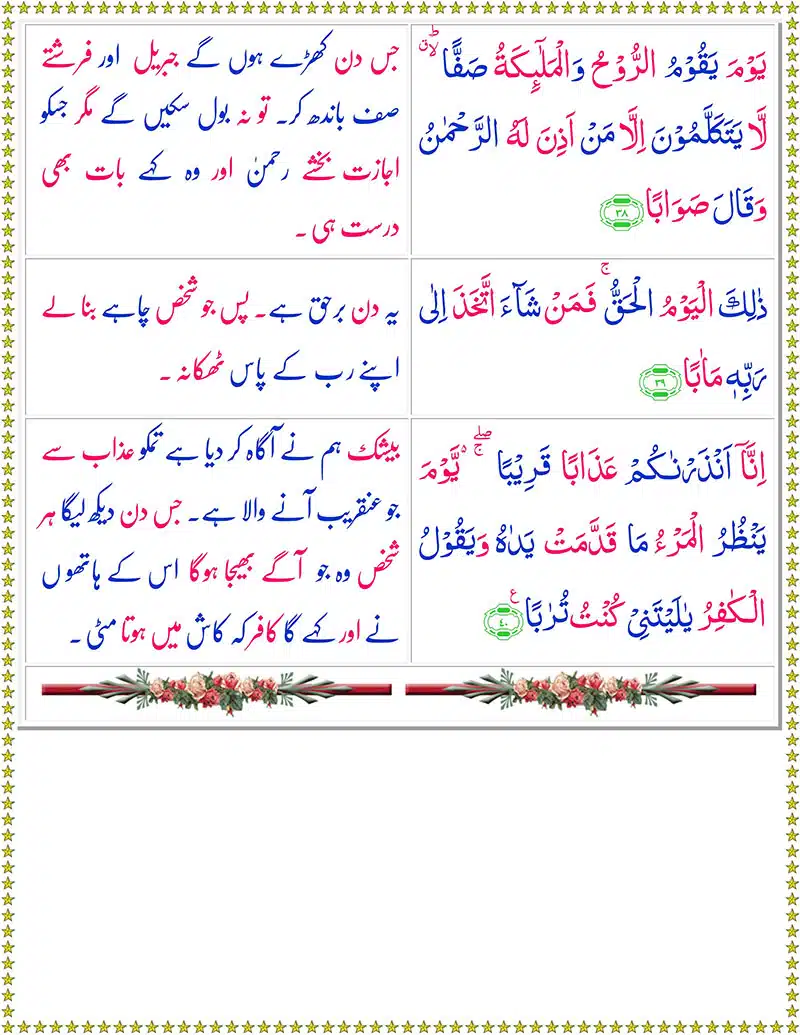 يَوْمَ يَقُوْمُ الرُّوْحُ وَالْمَلٰٓئِكَةُ صَفًّا ۙؕۗ
لَّا يَتَكَلَّمُوْنَ اِلَّا مَنْ اَذِنَ لَهُ الرَّحْمٰنُ
وَقَالَ صَوَابًا ﴿٣٨﴾
جس دن کھڑے ہوں گے جبریل اور فرشتے
صف باندھ کر۔ تو نہ بول سکیں گے مگر جسکو
اجازت بخشے رحمنٰ اور وہ کہے بات بھی
درست ہی ۔
ذٰلِكَ الْيَوْمُ الْحَقُّ ۚ فَمَنْ شَآءَ اتَّخَذَ اِلٰى
رَبِّهٖ مَاٰبًا ﴿٣٩﴾
یہ دن برحق ہے۔ پس جو شخص چاہے بنا لے
اپنے رب کے پاس ٹھکانہ ۔
اِنَّاۤ اَنْذَرْنٰكُمْ عَذَابًا قَرِيْبًا ۖۚ ۬ يَّوْمَ
يَنْظُرُ الْمَرْءُ مَا قَدَّمَتْ يَدٰهُ وَيَقُوْلُ
الْكٰفِرُ يٰلَيْتَنِىْ كُنْتُ تُرٰبًا ﴿٤٠﴾ ع
بیشک ہم نے آگاہ کر دیا ہے تمکو عذاب سے
جو عنقریب آنے والا ہے۔ جس دن دیکھ لیگا ہر
شخص وہ جو آگے بھیجا ہوگا اس کے ہاتھوں
نے اور کہے گا کافر کہ کاش میں ہوتا مٹی ۔